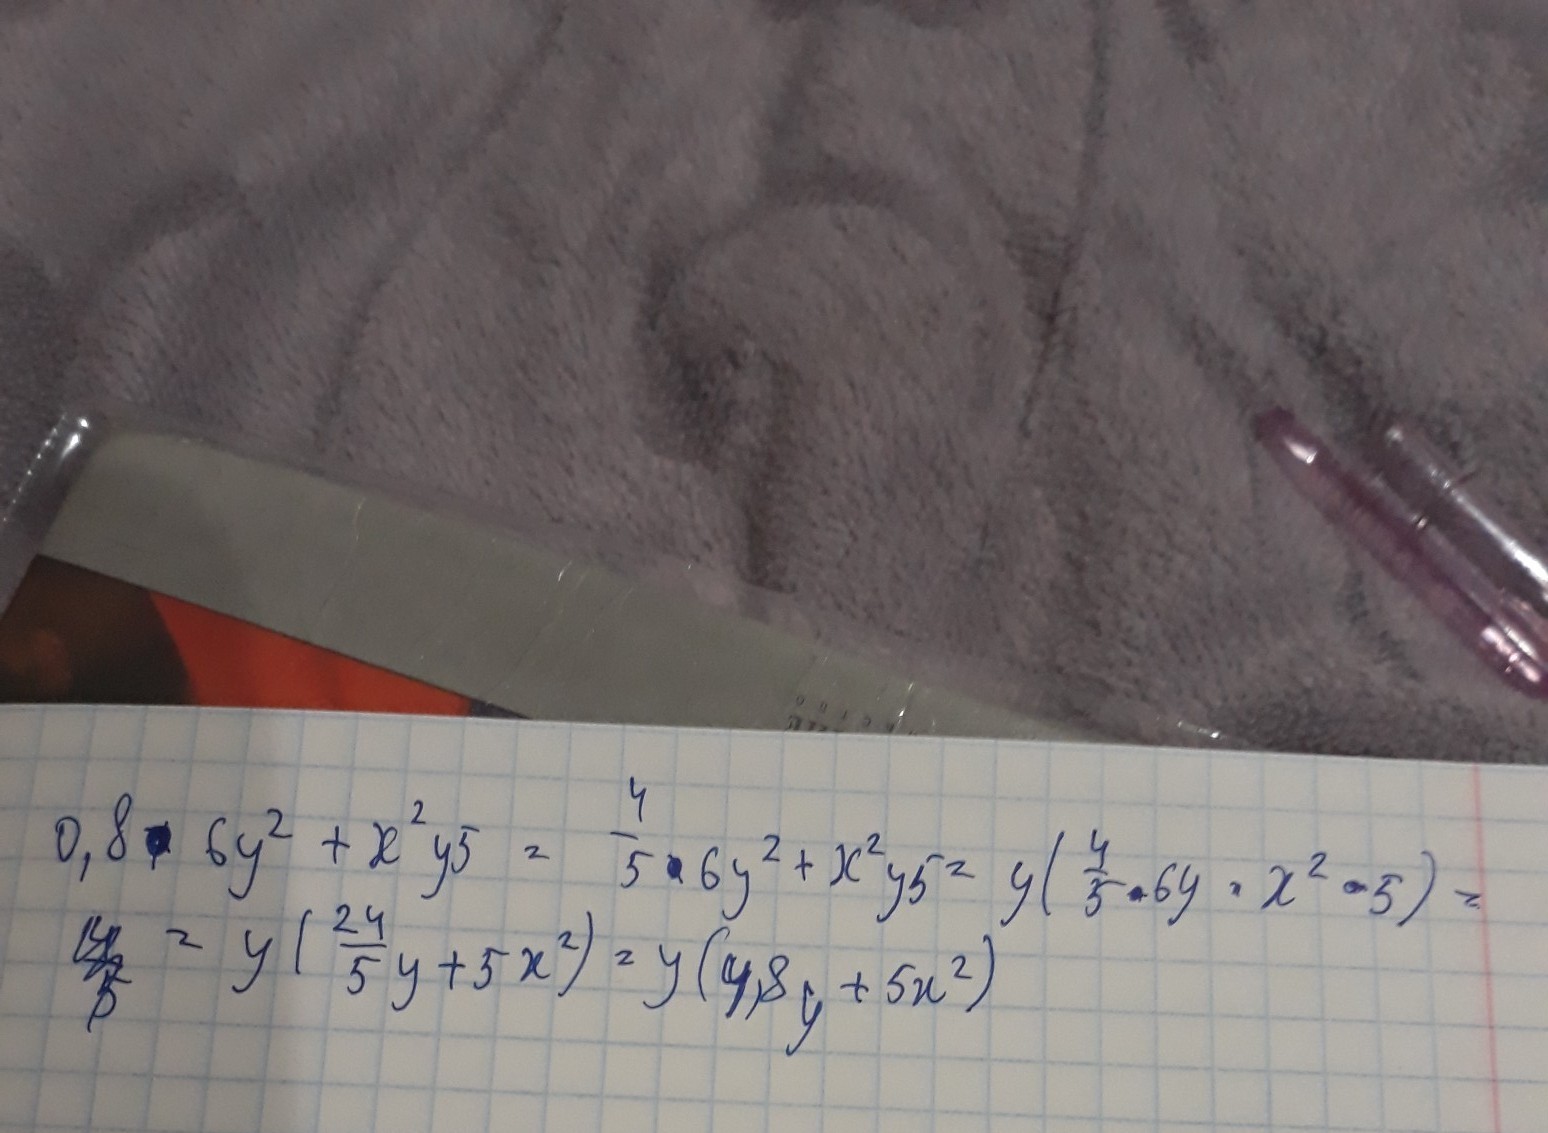 0,8 · 6y² + x²y5 = 4/5 · 6y² + x²y5 = y(4/5 · 6y · x² · 5) =
= y(24/5y + 5x²) = y(4,8y + 5x²)